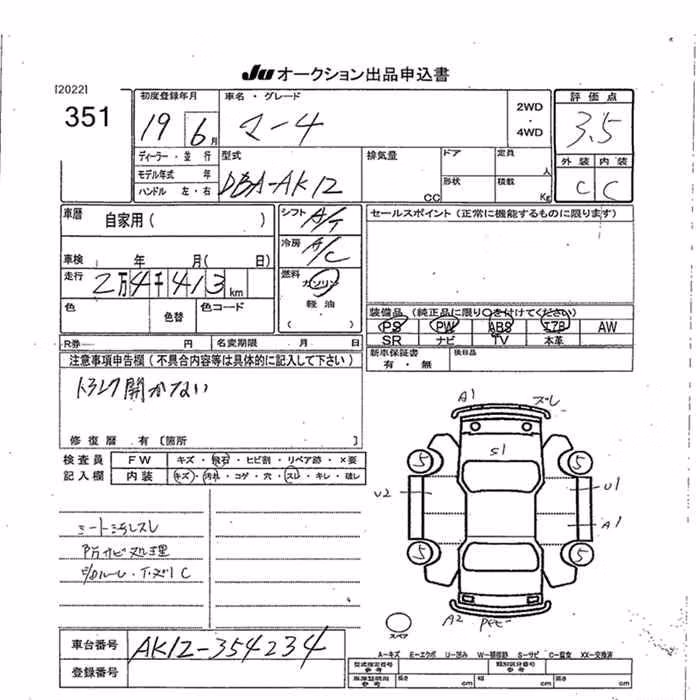 Ju オークション出品申込書
[2022]
351
初度登録年月 車名・グレード 2WD・4WD 評価点
19 6月 マーチ 3.5
ディーラー・並行 型式 排気量 ドア 定員 人 外装 内装
モデル年式 年 DBA-AK12 C C
ハンドル 左・右 CC 形状 積載 Kg
車暦 自家用( ) シフト A/T セールスポイント(正常に機能するものに限ります)
車検 年 月( 日) 冷房 A/C
走行 2万4千413km 燃料 ガソリン
色 色替 色コード 軽油
( )
装備品(純正品に限り○を付けてください)
PS PW ABS エアB AW
SR ナビ TV 本革
R券 円 名変期限 月 日 新車保証書 後日品
有・無
注意事項申告欄(不具合内容等は具体的に記入して下さい)
トランク開かない
修復暦 有〔箇所 〕
検査員 FW キズ・飛石・ヒビ割・リペア跡・×要
記入欄 内装 キズ・汚れ・コゲ・穴・スレ・キレ・破レ
シート汚レスレ
防サビ処理
A1 ズレ
S1
5 5
U2 U1
A1
5 5
A2
スペア
車台番号 AK12-354234
登録番号
A-キズ E-エクボ U-凹み W-補修跡 S-サビ C-腐食 XX-交換済
型式指定番号 参考 類別区分番号 参考
車庫証明 参考 長さ cm 幅 cm 高さ cm